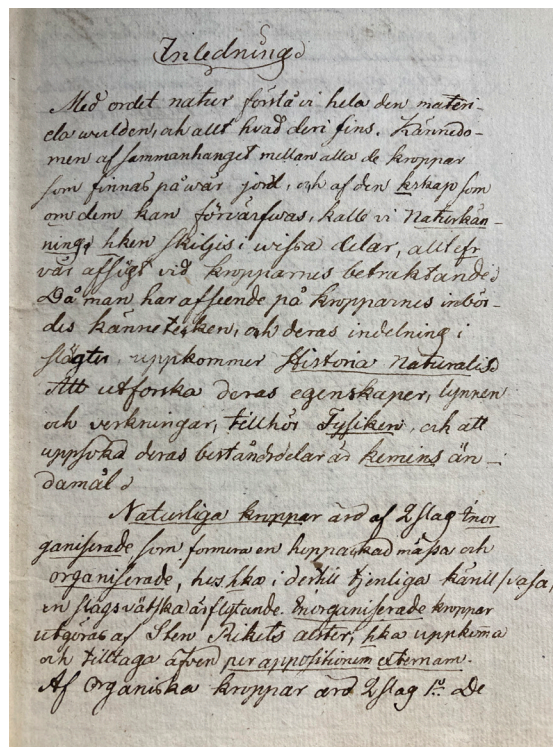 Inledning
Med ordet natur förstå vi hela den materi-
ela werlden, och allt hvad deri fins. Kännedo-
men af sammanhanget mellan alla de kroppar
som finnas på wår jord, och af den kskap som
om dem kan förvärfwas, kalle vi Naturkän-
ning, hken skiljes i wissa delar, allt efr
vår afsigt vid kropparnes betraktande
Då man har afseende på kropparnes inbör-
des känneteken, och deras indelning i
slägter, uppkommer Historia Naturalis
Att utforska deras egenskaper, lynnen
och verkningar, tillhör Fysiken, och att
uppsöka deras beståndsdelar är kemins än-
damål
Naturliga kroppar äro af 2 slag Inor
ganiserade som formera en hoppackad massa och
organiserade, hos hka i dertill tjenliga käril
en slags vätska är flytande. Inorganiserade kroppar
utgöras af Sten Rikets arter, hka uppkoma
och tilltaga äfven per appositionem externam.
Af Organiska kroppar äro 2 slag 1o De